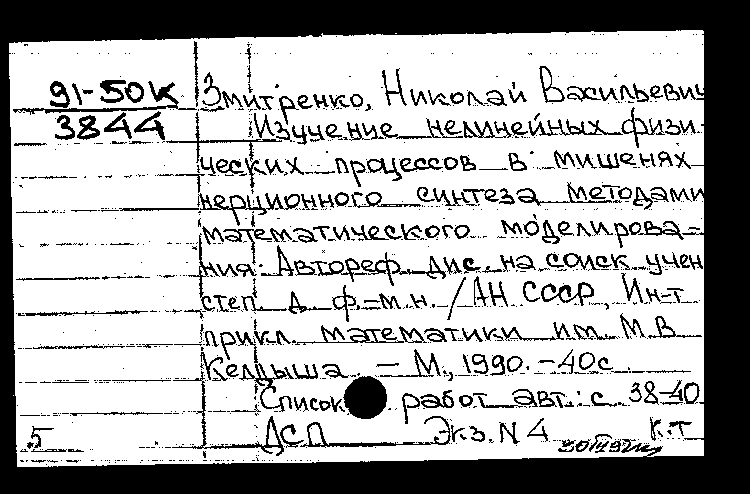 91-50К
3844
Змитренко, Николай Васильевич
Изучение нелинейных физи-
ческих процессов в мишенях
нерционного синтеза методами
математического моделирова=
ния: Автореф. дис. на соиск учен
степ. д. ф.=м.н. / АН СССР, Ин-т
прикл. математики им. М.В
Келдыша. - М., 1990. - 40с
Список работ авт.: с. 38-40
5 ДСП Экз. N 4 К.т